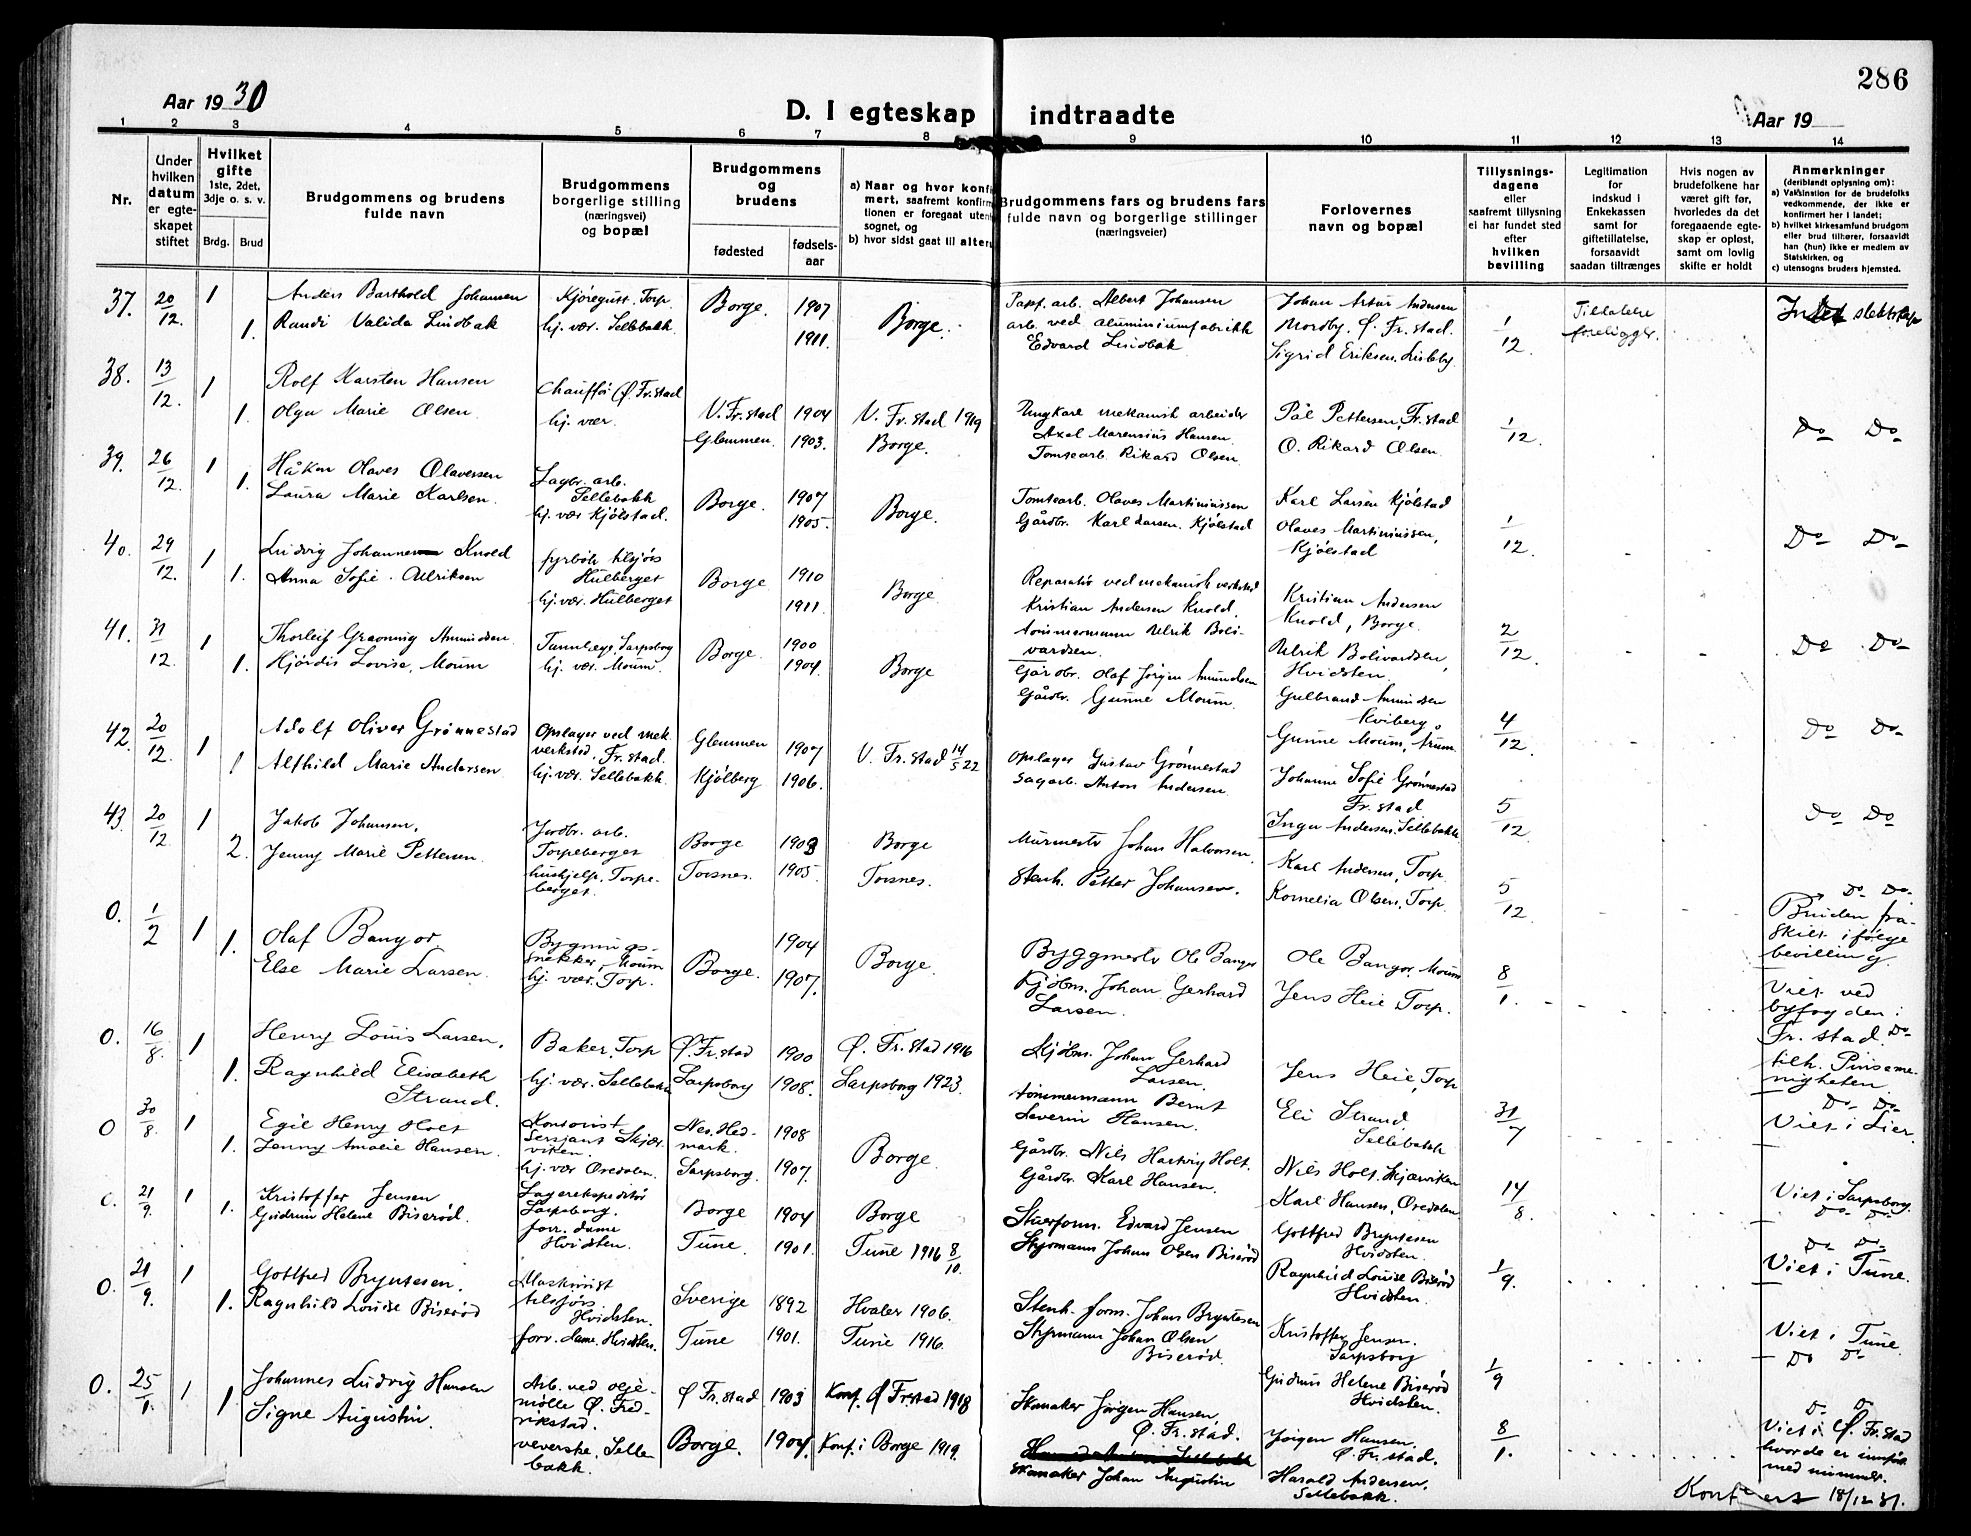 286
Aar 1930
D. I egteskap indtraadte
Aar 19
1 2 3 4 5 6 7 8 9 10 11 12 13 14
Nr.
Under hvilken datum er egteskapet stiftet
Hvilket gifte 1ste, 2det, 3dje o. s. v.
Brdg. Brud
Brudgommens og brudens fulde navn
Brudgommens borgerlige stilling (næringsvei) og bopæl
Brudgommens og brudens
fødested
fødsels-aar
a) Naar og hvor konfirmert, saafremt konfirmationen er foregaat utenfor sognet, og
b) hvor sidst gaat til alters
Brudgommens fars og brudens fars fulde navn og borgerlige stillinger (næringsveier)
Forlovernes navn og bopæl
Tillysnings-dagene eller saafremt tillysning ei har fundet sted efter hvilken bevilling
Legitimation for indskud i Enkekassen samt for giftetillatelse, forsaavidt saadan tiltrænges
Hvis nogen av brudefolkene har været gift før, hvorledes da det foregaaende egteskap er opløst, samt om lovlig skifte er holdt
Anmerkninger (deriblandt oplysning om):
a) Vaksination for de brudefolks vedkommende, der ikke er konfirmert her i landet;
b) hvilket kirkesamfund brudgom eller brud tilhører, forsaavidt han (hun) ikke er medlem av Statskirken, og
c) utensogns bruders hjemsted.
37. 20/12 1 Anders Barthold Johansen Kjøregutt. Torp Borge. 1907 Borge. Papf. arb. Albert Johansen Johan Artur Andersen 1/12 Tillatelse foreligger. Intet slektskap
1. Randi Valida Lindbak hj. vær. Sellebakk 1911. arb. ved aluminiumfabrikk Edvard Lindbak Nordby, Ø. Fr.stad. Sigrid Eriksen. Lisleby
38. 13/12 1 Rolf Karsten Hansen Chauffør Ø. Fr.stad V. Fr.stad 1904 V. Fr.stad 1919 Ungkarl mekanisk arbeider Axel Marensius Hansen Pål Pettersen, Fr.stad 1/12. Do Do
1. Olga Marie Olsen hj. vær Glemmen. 1903. Borge. Tomtearb. Rikard Olsen O. Rikard Olsen
39. 26/12 1 Håkon Olaves Olavesen Sagbr. arb. Sellebakk Borge. 1907 Borge. Tomtearb. Olaves Martiniussen Karl Larsen Kjølstad 1/12.
1. Laura Marie Karlsen. hj. vær Kjølstad. 1905. Gårdbr. Karl Larsen. Kjølstad Olaves Martiniussen, Kjølstad Do Do
40. 29/12. 1 Ludvig Johannes Knold fyrbøt. Hulberget Borge 1910 Borge Reparatør ved mekanisk verksted Kristian Andersen Knold. Kristian Andersen Knold, Borge. 2/12
1. Anna Sofie Ulriksen hj. vær. Hulberget 1911. tømmermann Ulrik Bolivardsen. Ulrik Bolivardsen, Hvidsten. Do Do
41. 31/12 1 Thorleif Graoning Amundsen Tannlege, Sarpsborg Borge. 1900 Borge Gårdbr. Olaf Jørgen Amundsen Gulbrand Amundsen Kviberg. 4/12
1. Hjørdis Lovise Moum hj. vær. Moum 1904. Gårdbr. Gunne Moum. Gunne Moum, Årum. Do Do
42. 20/12. 1 Adolf Oliver Grønnestad Opslager ved mek. verksted. Fr.stad. Glemmen 1907 V. Fr.stad 14/5 22 opslager Gustav Grønnestad Johanne Sofie Grønnestad Fr.stad 5/12
1 Alfhild Marie Andersen hj. vær. Sellebakk Kjølberg 1906. sagarb. Anton Andersen Inga Andersen. Sellebakk Do Do
43. 20/12 1 Jakob Johansen. Jordbr. arb. Torpeberget Borge 1903 Borge Murmestr. Johan Halvorsen. Karl Andersen, Torp. 5/12 Do Do
2. Jenny Marie Pettersen. hushjelp. Torpeberget. Torsnes. 1905. Torsnes. Stenh. Petter Johansen. Kornelia Olsen, Torp Bruden fraskilt ifølge bevilling
0. 1/2 1 Olaf Bangor Bygningssnekker, Moum Borge. 1904 Borge Byggmestr. Ole Bangor Ole Bangor, Moum 8/1. Viet ved byfogden i Fr.stad.
1. Else Marie Larsen. hj. vær. Torp. 1907. Kjøbm. Johan Gerhard Larsen. Jens Heie, Torp. Do tilh. Pinsemenigheten
0. 16/8. 1 Henry Louis Larsen, Baker, Torp Ø. Fr.stad 1900 Ø. Fr.stad 1916 Kjøbm. Johan Gerhard Larsen. Jens Heie, Torp 31/7 Do Do
1. Ragnhild Elisabeth Strand. hj. vær. Sellebakk Sarpsborg 1908. Sarpsborg 1923. tømmermann Bernt Severin Hansen. Eli Strand, Sellebakk Viet i Lier.
0 30/8. 1 Egil Henry Holt Kontorist Sersjant Skjærviken. Nes. Hedmark. 1908 Borge Gårdbr. Nils Hartvig Holt. Nils Holt. Skjærviken 14/8. Viet i Sarpsborg.
1. Jenny Amalie Hansen. hj. vær Øredalen. Sarpsborg. 1907. Gårdbr. Karl Hansen. Karl Hansen, Øredalen Do Do
0. 21/9. 1 Kristoffer Jensen Lagerekspeditør Sarpsborg. Borge 1904 Borge Stuerform. Edvard Jensen Gottfred Bryntesen Hvidsten. 1/9. Do Do
1. Gudrun Helene Biserød. forr. dame Hvidsten. Tune. 1901. Tune 1916 8/10. Styrmann Johan Olsen Biserød Ragnhild Louise Biserød Hvidsten. Viet i Tune.
0. 21/9. 1 Gottfred Bryntesen. Maskinist Hvidsten. Sverige 1892 Hvaler 1906. Stenh. form. Johan Bryntesen Kristoffer Jensen. Sarpsborg 1/9 Viet i Tune.
1. Ragnhild Louise Biserød forr. dame. Hvidsten. Tune 1901. Tune 1916. Styrmann Johan Olsen Biserød. Gudrun Helene Biserød Hvidsten. Do Do
0. 25/1. 1 Johannes Ludvig Hansen Arb. ved oljemølle Ø. Fredrikstad. Ø Fr.stad 1903 Konf. Ø Frstad 1918 Skomaker Jørgen Hansen, Ø. Fr.stad. Jørgen Hansen. Ø. Fr.stad. 8/1. Do Do Viet i Ø Fr.stad
1 Signe Augustin. veverske. Sellebakk. Borge. 1904. Konf. i Borge 1919. Skomaker Johan Augustin Harald Andersen. Sellebakk. hvor de er innført med nummer.
Konferert 18/12 31.